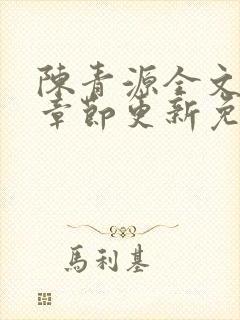 陳青源全文
章節更新免
馬利基